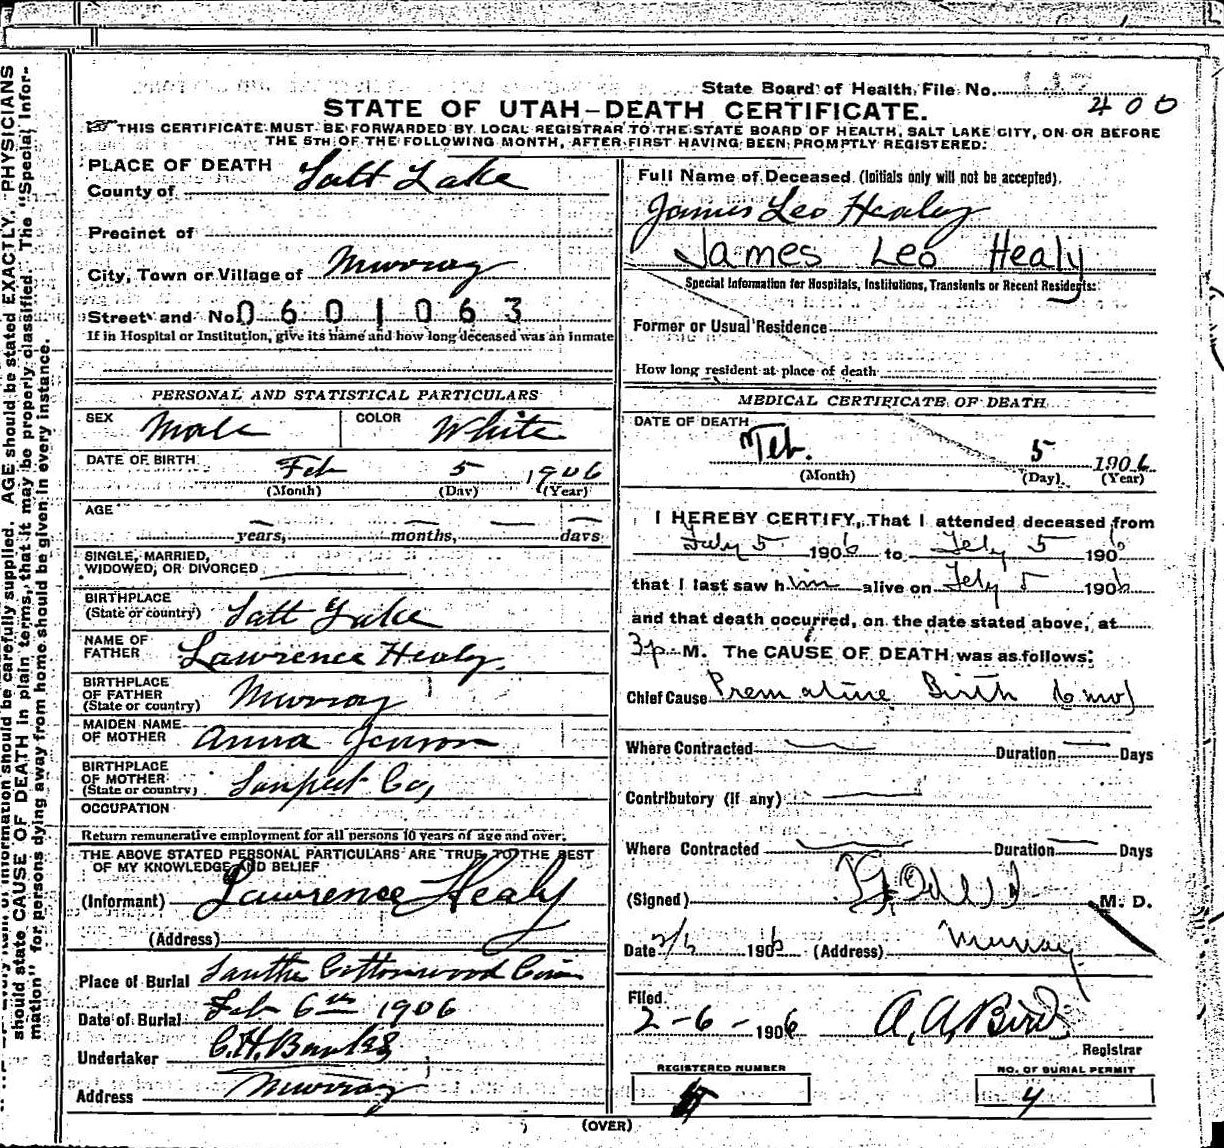 should state CAUSE OF DEATH in plain terms, that it may be properly classified. The "Special Infor-
mation" for persons dying away from home should be given in every instance.
information should be carefully supplied. AGE should be stated EXACTLY. PHYSICIANS
State Board of Health, File No.
400
STATE OF UTAH—DEATH CERTIFICATE.
THIS CERTIFICATE MUST BE FORWARDED BY LOCAL REGISTRAR TO THE STATE BOARD OF HEALTH, SALT LAKE CITY, ON OR BEFORE
THE 5TH OF THE FOLLOWING MONTH, AFTER FIRST HAVING BEEN PROMPTLY REGISTERED:
PLACE OF DEATH
County of Salt Lake
Precinct of
City, Town or Village of Murray
Street and No. 0601063
If in Hospital or Institution, give its name and how long deceased was an inmate
PERSONAL AND STATISTICAL PARTICULARS
SEX Male COLOR White
DATE OF BIRTH Feb 5 1906
(Month) (Day) (Year)
AGE
years, months, days
SINGLE, MARRIED,
WIDOWED, OR DIVORCED
BIRTHPLACE
(State or country) Salt Lake
NAME OF
FATHER Lawrence Healy.
BIRTHPLACE
OF FATHER
(State or country) Murray
MAIDEN NAME
OF MOTHER Anna Jenson
BIRTHPLACE
OF MOTHER
(State or country) Sanpeet Co,
OCCUPATION
Return remunerative employment for all persons 10 years of age and over.
THE ABOVE STATED PERSONAL PARTICULARS ARE TRUE TO THE BEST
OF MY KNOWLEDGE AND BELIEF
(Informant) Lawrence Healy
(Address)
Place of Burial Cottonwood
Date of Burial Feb 6th 1906
Undertaker C.H.
Address Murray
Full Name of Deceased (Initials only will not be accepted).
James Leo Healey
James Leo Healy
Special Information for Hospitals, Institutions, Transients or Recent Residents:
Former or Usual Residence
How long resident at place of death
MEDICAL CERTIFICATE OF DEATH
DATE OF DEATH
Feb. 5 1906
(Month) (Day) (Year)
I HEREBY CERTIFY, That I attended deceased from
Feby 5 1906 to Feby 5 1906
that I last saw him alive on Feby 5 1906
and that death occurred, on the date stated above, at
3 p M. The CAUSE OF DEATH was as follows:
Chief Cause Premature Birth (6 mo)
Where Contracted Duration Days
Contributory (if any)
Where Contracted Duration Days
(Signed) M. D.
Date 2/6 1906 (Address) Murray
Filed
2-6-1906 A. A. Bird
Registrar
REGISTERED NUMBER
NO. OF BURIAL PERMIT
4
(OVER)